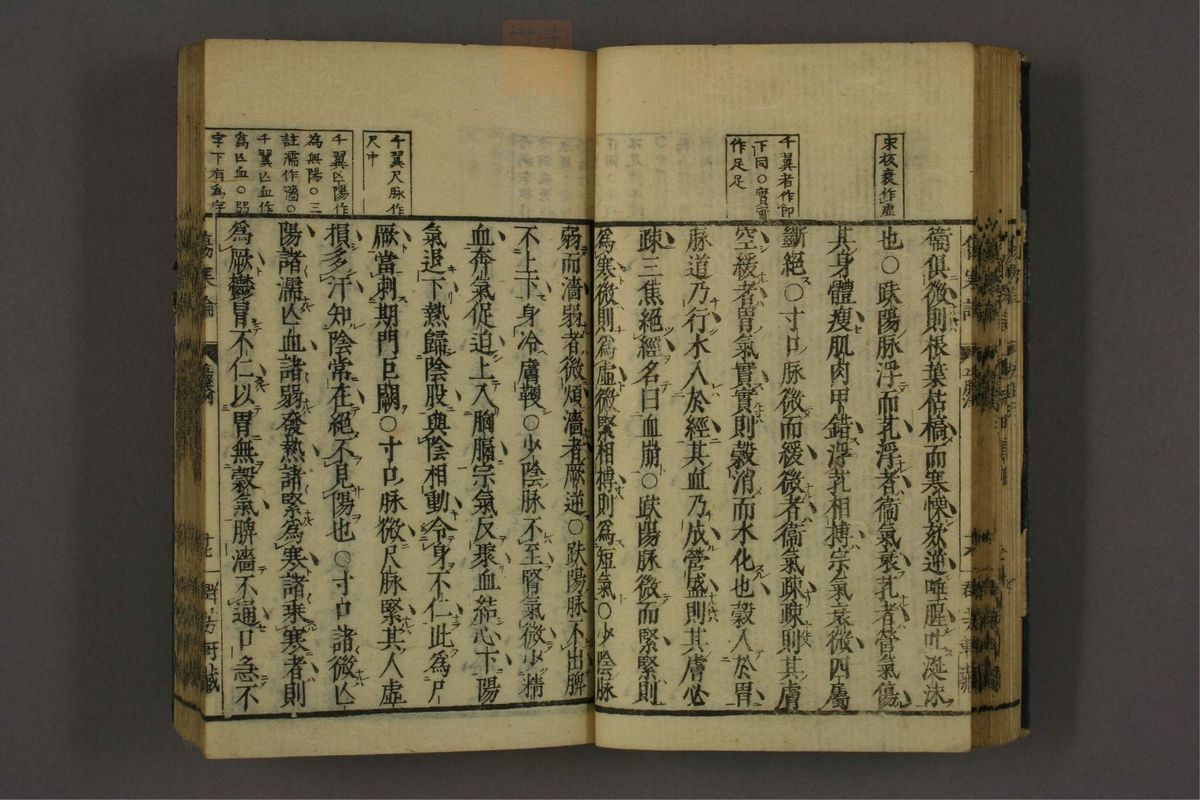 宋板衰作虛
千翼者作即
下同○實實
作足足
衞俱微則根葉枯槁而寒慄欬逆唾腥吐涎沫
也○趺陽脉浮而芤浮者衞氣衰芤者營氣傷
其身體瘦肌肉甲錯浮芤相搏宗氣衰微四屬
斷絕○寸口脉微而緩微者衞氣疎疎則其膚
空緩者胃氣實實則穀消而水化也穀入於胃
脉道乃行水入於經其血乃成營盛則其膚必
疎三焦絕經名曰血崩○趺陽脉微而緊緊則
爲寒微則爲虛微緊相搏則爲短氣○少陰脉
千翼尺脉作
尺中
千翼亡陽作
爲無陽○三
註濡作濇○
千翼亡血作
爲亡血○弱
字下有爲字
弱而濇弱者微煩濇者厥逆○趺陽脉不出脾
不上下身冷膚鞕○少陰脉不至腎氣微少精
血奔氣促迫上入胸膈宗氣反聚血結心下陽
氣退下熱歸陰股與陰相動令身不仁此爲尸
厥當刺期門巨闕○寸口脉微尺脉緊其人虛
損多汗知陰常在絕不見陽也○寸口諸微亡
陽諸濡亡血諸弱發熱諸緊爲寒諸乘寒者則
爲厥鬱冒不仁以胃無穀氣脾濇不通口急不
傷寒論